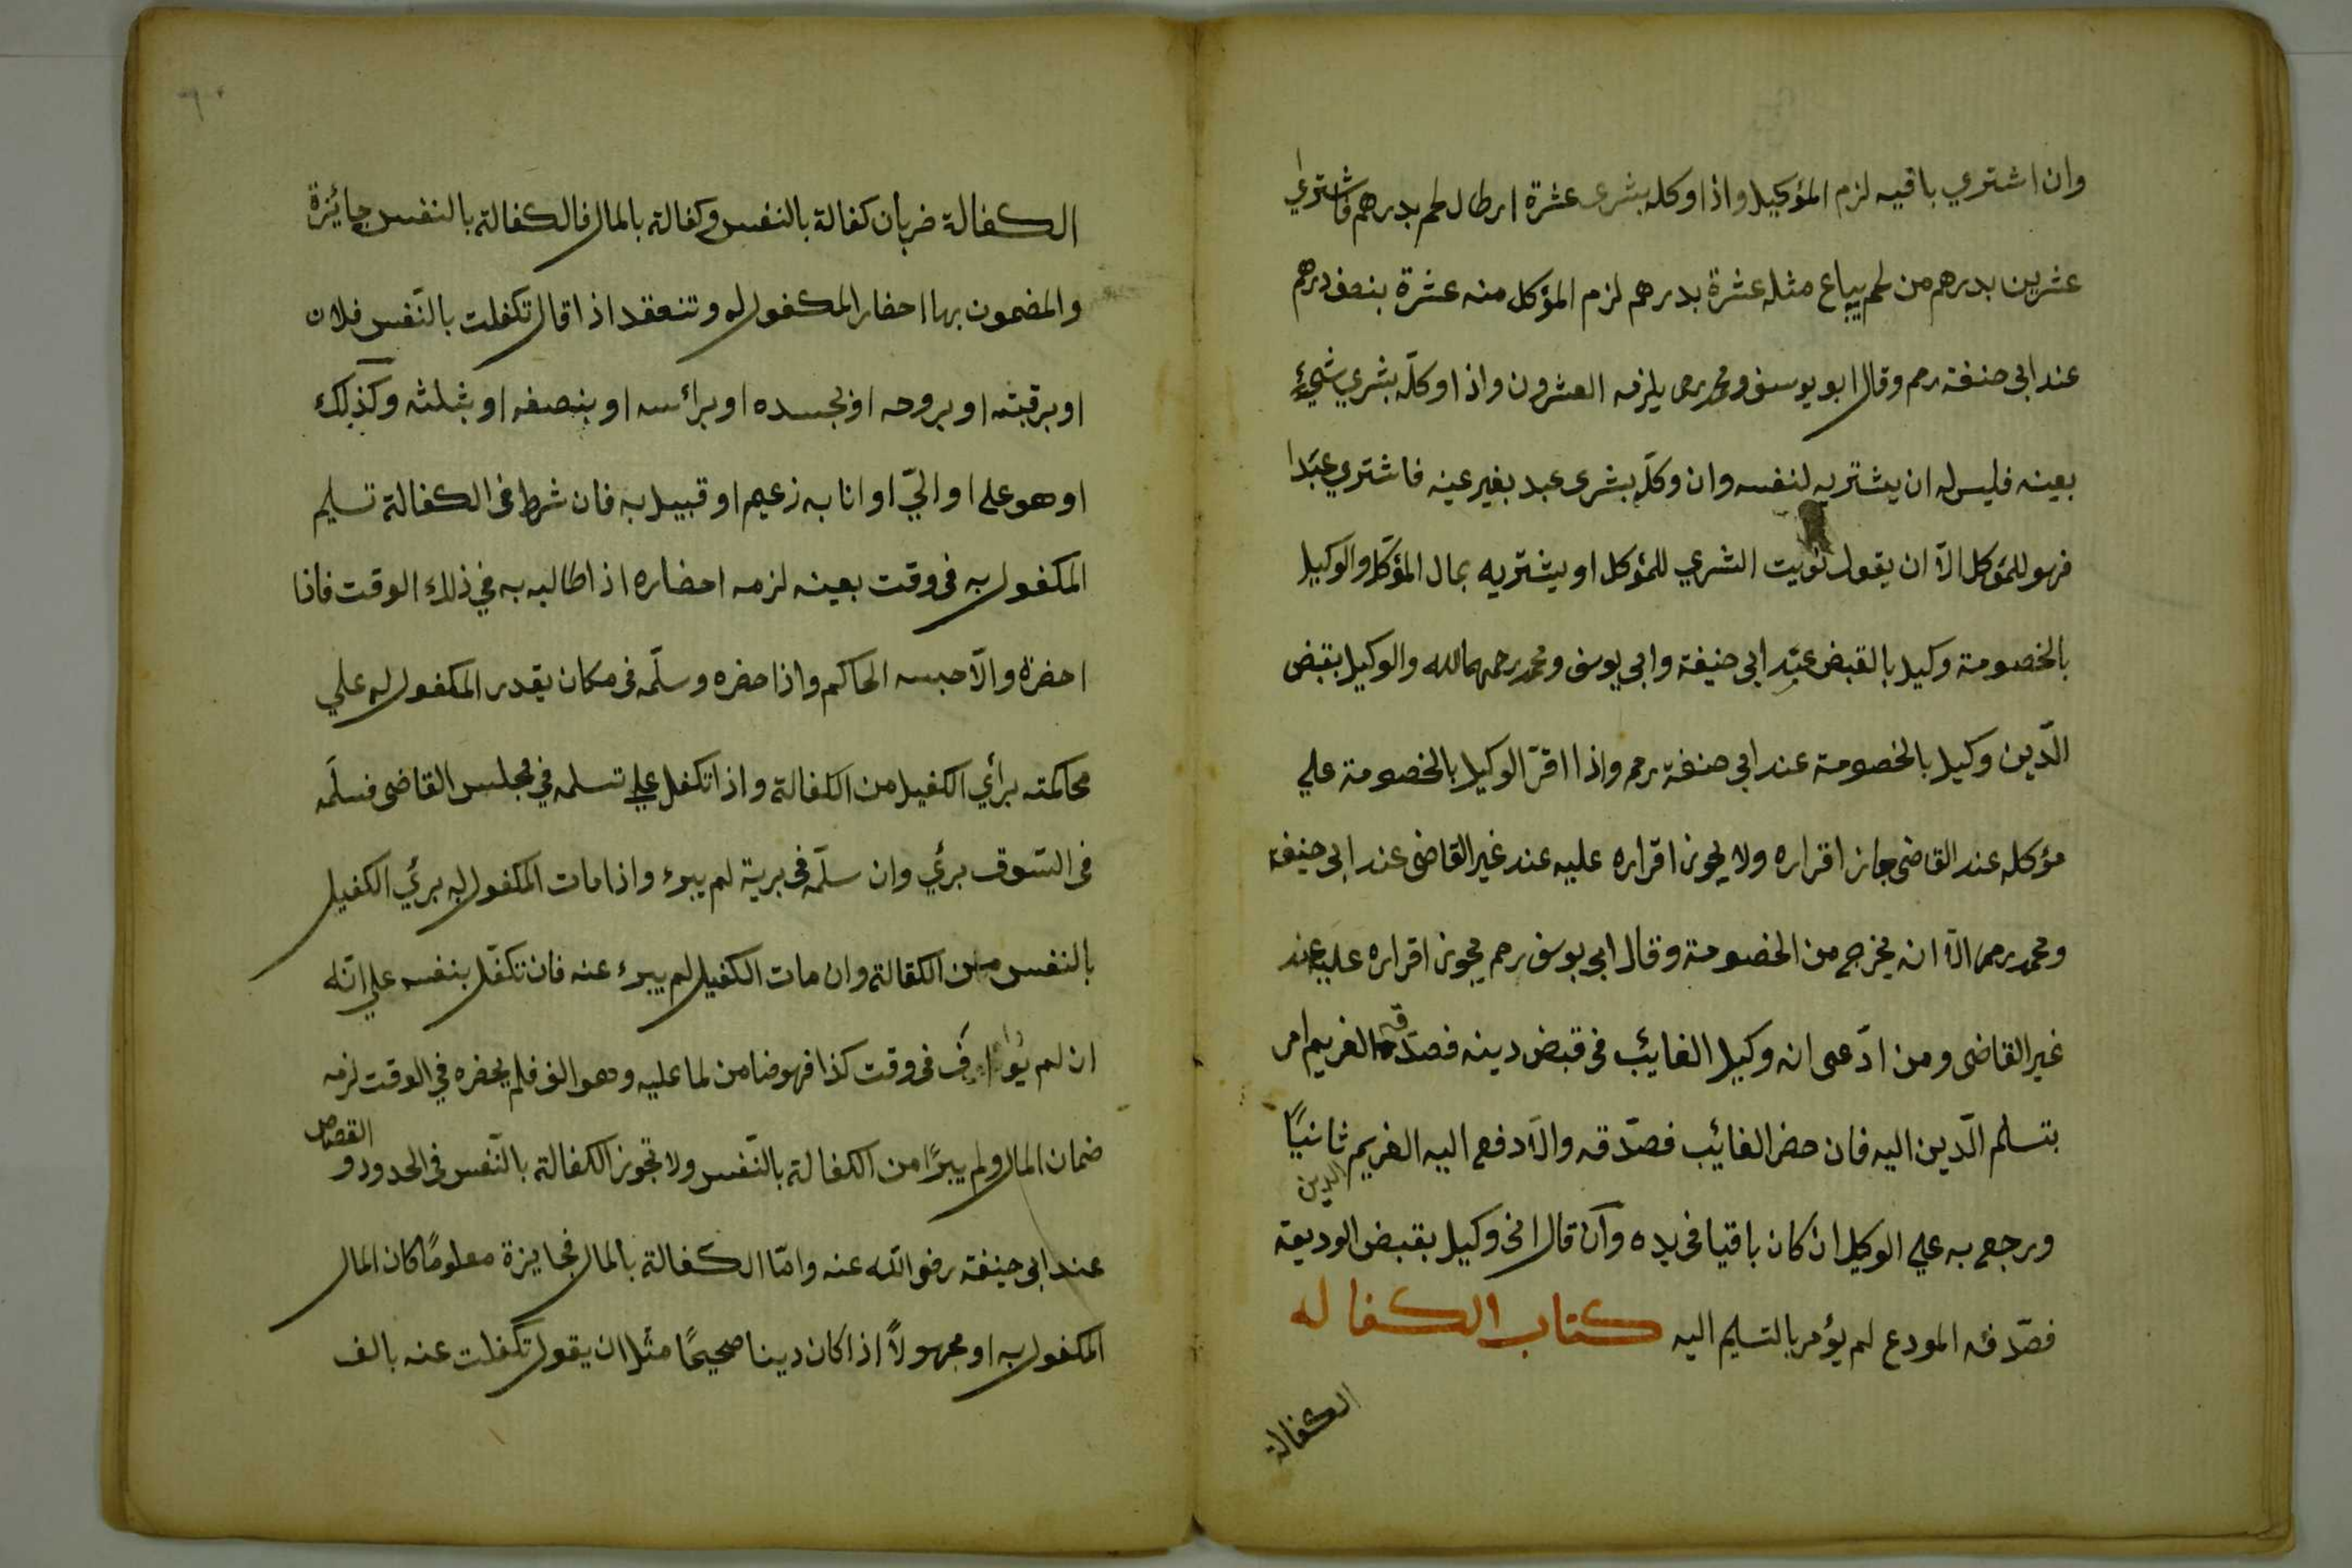 وان اشتري باقيه لزم المؤكيل واذا وكله بشرى عشرة ارطال لحم بدرهم فاشتري
عشرين بدرهم من لحم يباع مثله عشرة بدرهم لزم المؤكل منه عشرة بنصف درهم
عند ابى حنفة رحم وقال ابو يوسف ومحمد رحم يلزمه العشرون واذا وكلّه بشري شيءٍ
بعينه فليس له ان يشتريه لنفسه وان وكلّه بشرى عبد بغير عينه فاشتري عبدا
فهو للمؤكل الّا ان يقول نويت الشري للمؤكل او يشتريه بمال المؤكّل والوكيل
بالخصومة وكيل بالقبض عند ابى حنيفة وابى يوسف ومحمد رحمهما الله والوكيل بقبض
الدّين وكيل بالخصومة عند ابى حنفة رحم واذا اقرّ الوكيل بالخصومة علي
مؤكله عند القاضى جاز اقراره ولا يجوز اقراره عليه عند غير القاضى عند ابى حنيفة
ومحمد رحم الّا انه يخرج من الخصومة وقال ابى يوسف رحم يجوز اقراره عليه عند
غير القاضى ومن ادّعى انه وكيل الغايئب فى قبض دينه فصدّقه الغريم امر
بتسلم الدّين اليه فان حضر الغائيب فصدّقه والّا دفع اليه الغريم ثانيًا
الدين
ورجع به علي الوكيل ان كان باقيا فى يده وان قال انى وكيل بقبض الوديعة
فصدّقه المودع لم يؤمر بالتسليم اليه كتاب الكفاله
الكفالة
٦٠
الكفالة ضربان كفالة بالنفس وكفالة بالمال فالكفالة بالنفس جائزة
والمضمون بها احضار المكفول له وتنعقد اذا قال تكفلت بالنّفس فلان
او برقبته او بروحه او بجسده او برائسه او بنصفه او بثلثه وكذلك
او هو علي او اليّ او انا به زعيم او قبيل به فان شرط فى الكفالة تسليم
المكفول به فى وقت بعينه لزمه احضاره اذا طالبه به في ذلك الوقت فاذا
احضره والّا حبسه الحاكم واذا حضره وسلّمه فى مكان يقدر المكفول له علي
محاكمته برأي الكفيل من الكفالة واذا تكفل علي تسلمه في مجلس القاضى فسلّمه
فى السّوق برئي وان سلّمه فى برية لم يبرء واذا مات المكفول به برئي الكفيل
بالنفس من الكفالة وان مات الكفيل لم يبرء عنه فان تكفّل بنفسه علي انّه
ان لم يوا ف فى وقت كذا فهو ضامن لما عليه وهو الف فلم يحضره في الوقت لزمه
ضمان المال ولم يبرًا من الكفالة بالنّفس ولا تجوز الكفالة بالنّفس فى الحدود و القصاص
عند ابى حنيفة رضى الله عنه وامّا الكفالة بالمال فجايزة معلومًا كان المال
المكفول به او مجهولًا اذا كان دينا صحيحًا مثل ان يقول تكفلت عنه بالف